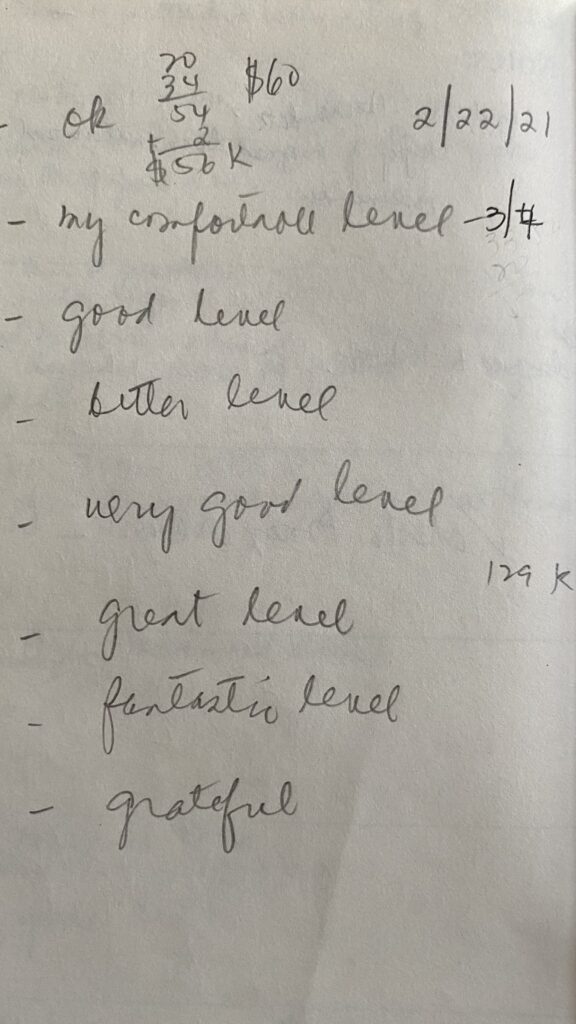 20
34 $60
- ok 54 2/22/21
+ 2
$56 K
- my comfortable level - 3/4
- good level
- better level
- very good level
129 K
- great level
- fantastic level
- grateful